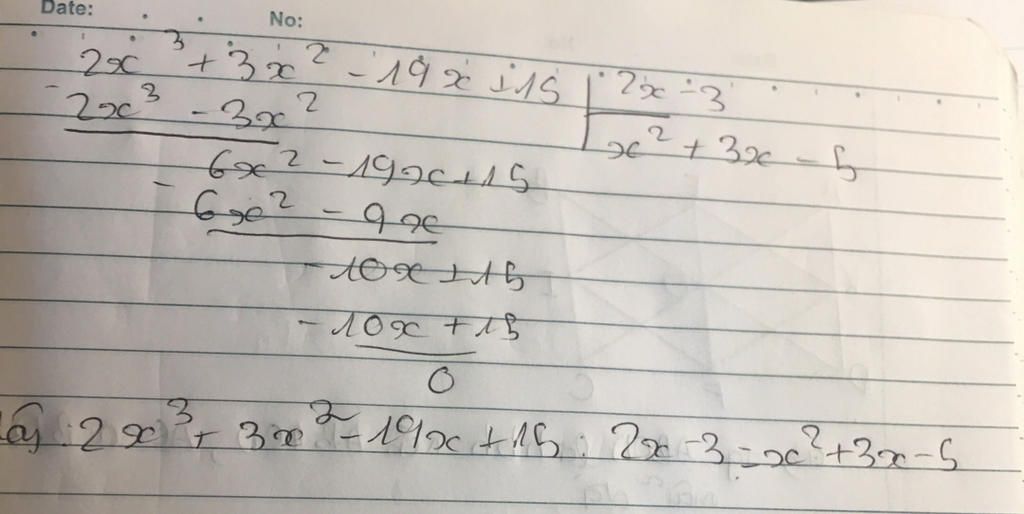 Date: No:
2x³ + 3x² - 19x + 15 | 2x - 3
- 2x³ - 3x² | x² + 3x - 5
6x² - 19x + 15
- 6x² - 9x
- 10x + 15
- 10x + 15
0
: 2x³ + 3x² - 19x + 15 : 2x - 3 = x² + 3x - 5